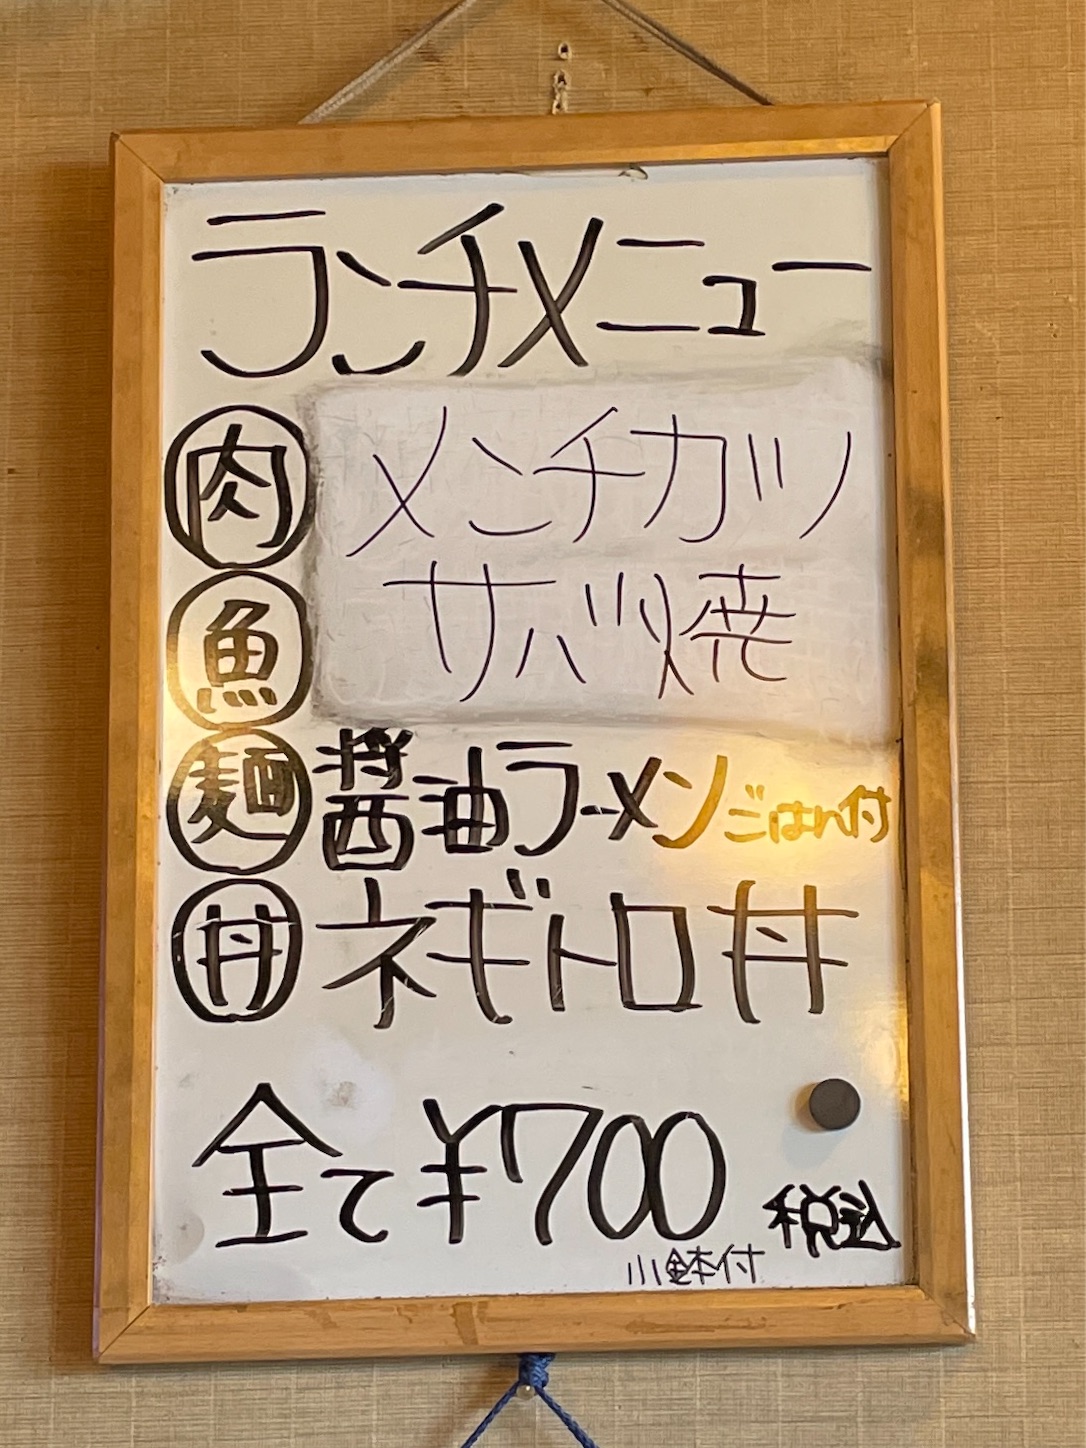 ランチメニュー
肉 メンチカツ
魚 サバ焼
麺 醤油ラーメンごはん付
丼 ネギトロ丼
全て¥700 税込
小鉢付